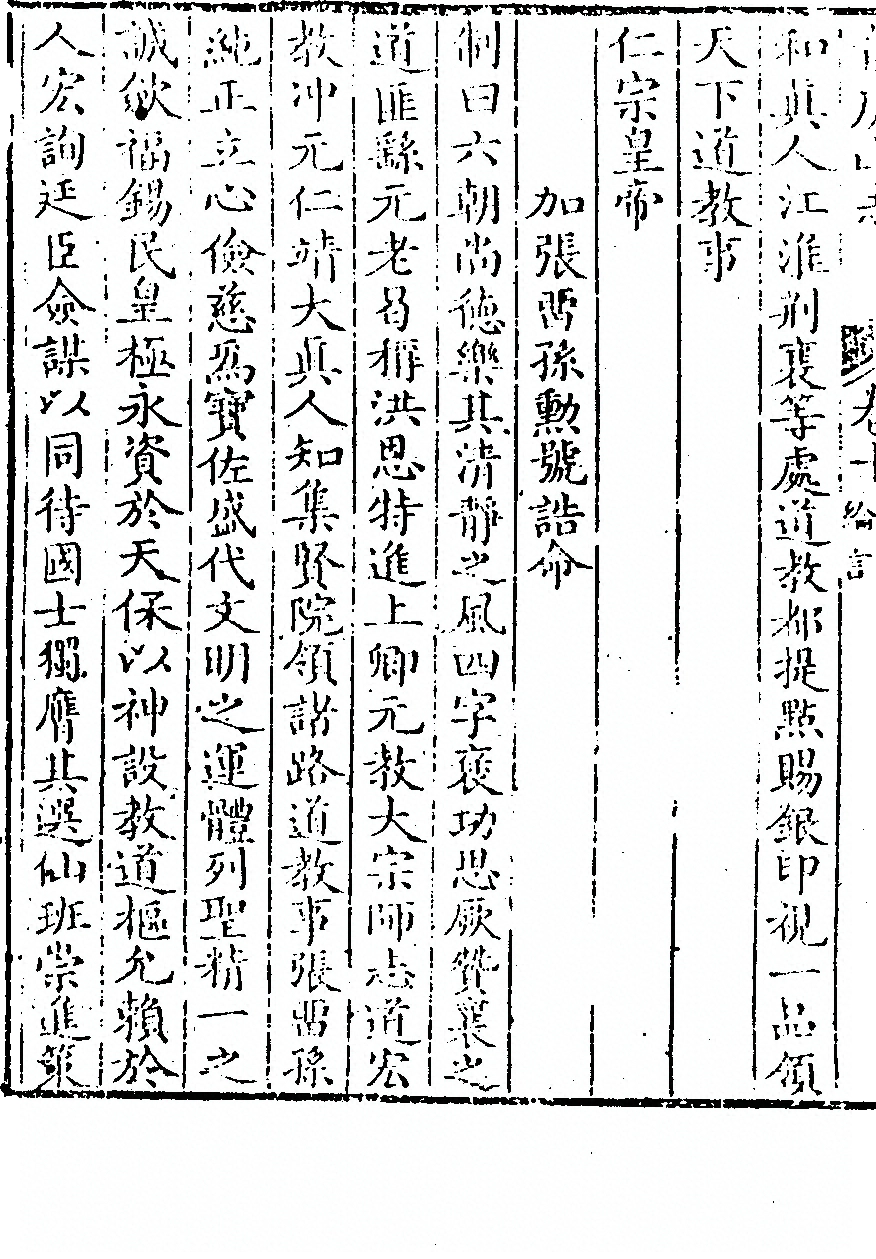 卷十 綸言
和眞人江淮荆襄等處道教都提點賜銀印視一品領
天下道教事
仁宗皇帝
加張畱孫勲號誥命
制曰六朝尚德樂其清靜之風四字褒功思厥贊襄之
道匪繇元老曷稱洪恩特進上卿元教大宗師志道宏
教冲元仁靖大眞人知集賢院領諸路道教事張畱孫
純正立心儉慈爲寶佐盛代文明之運體列聖精一之
誠歛福錫民皇極永資於天保以神設教道樞允賴於
人宏詢廷臣僉謀以同待國士獨膺其選仙班崇進策